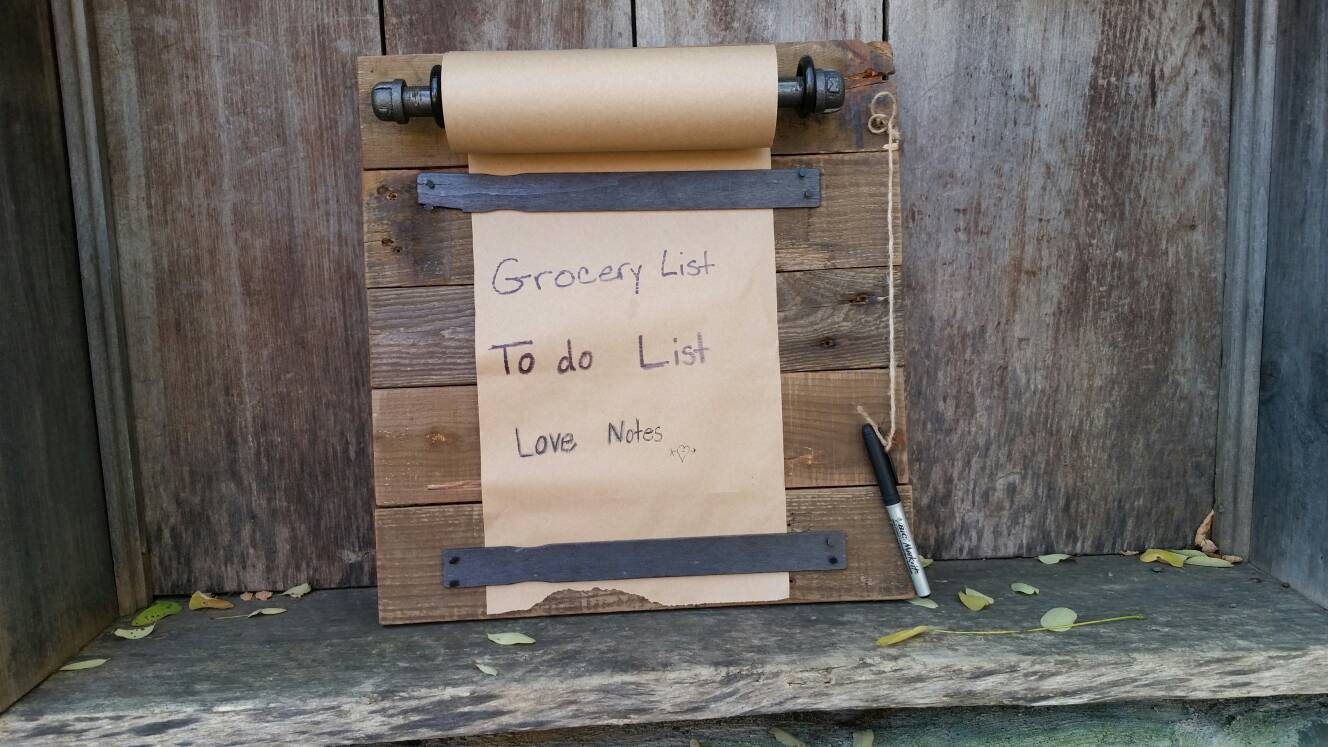 Grocery List
To do List
Love Notes
BIC Mark-it